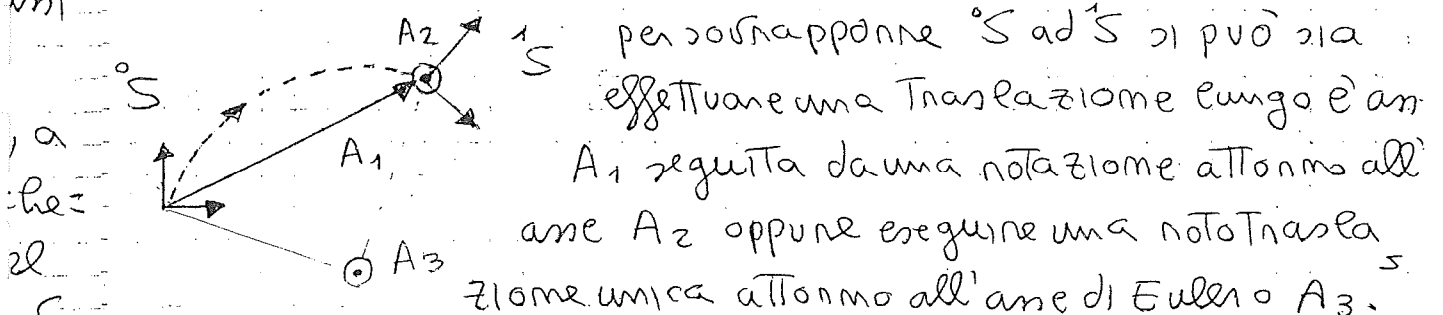 A2 ¹S per sovrapporre °S ad ¹S si può sia
°S effettuare una Traslazione lungo l'asse
, a A1 A1 seguita da una rotazione attorno all'
che asse A2 oppure eseguire una rototrasla
el A3 zione unica attorno all'asse di Eulero A3.